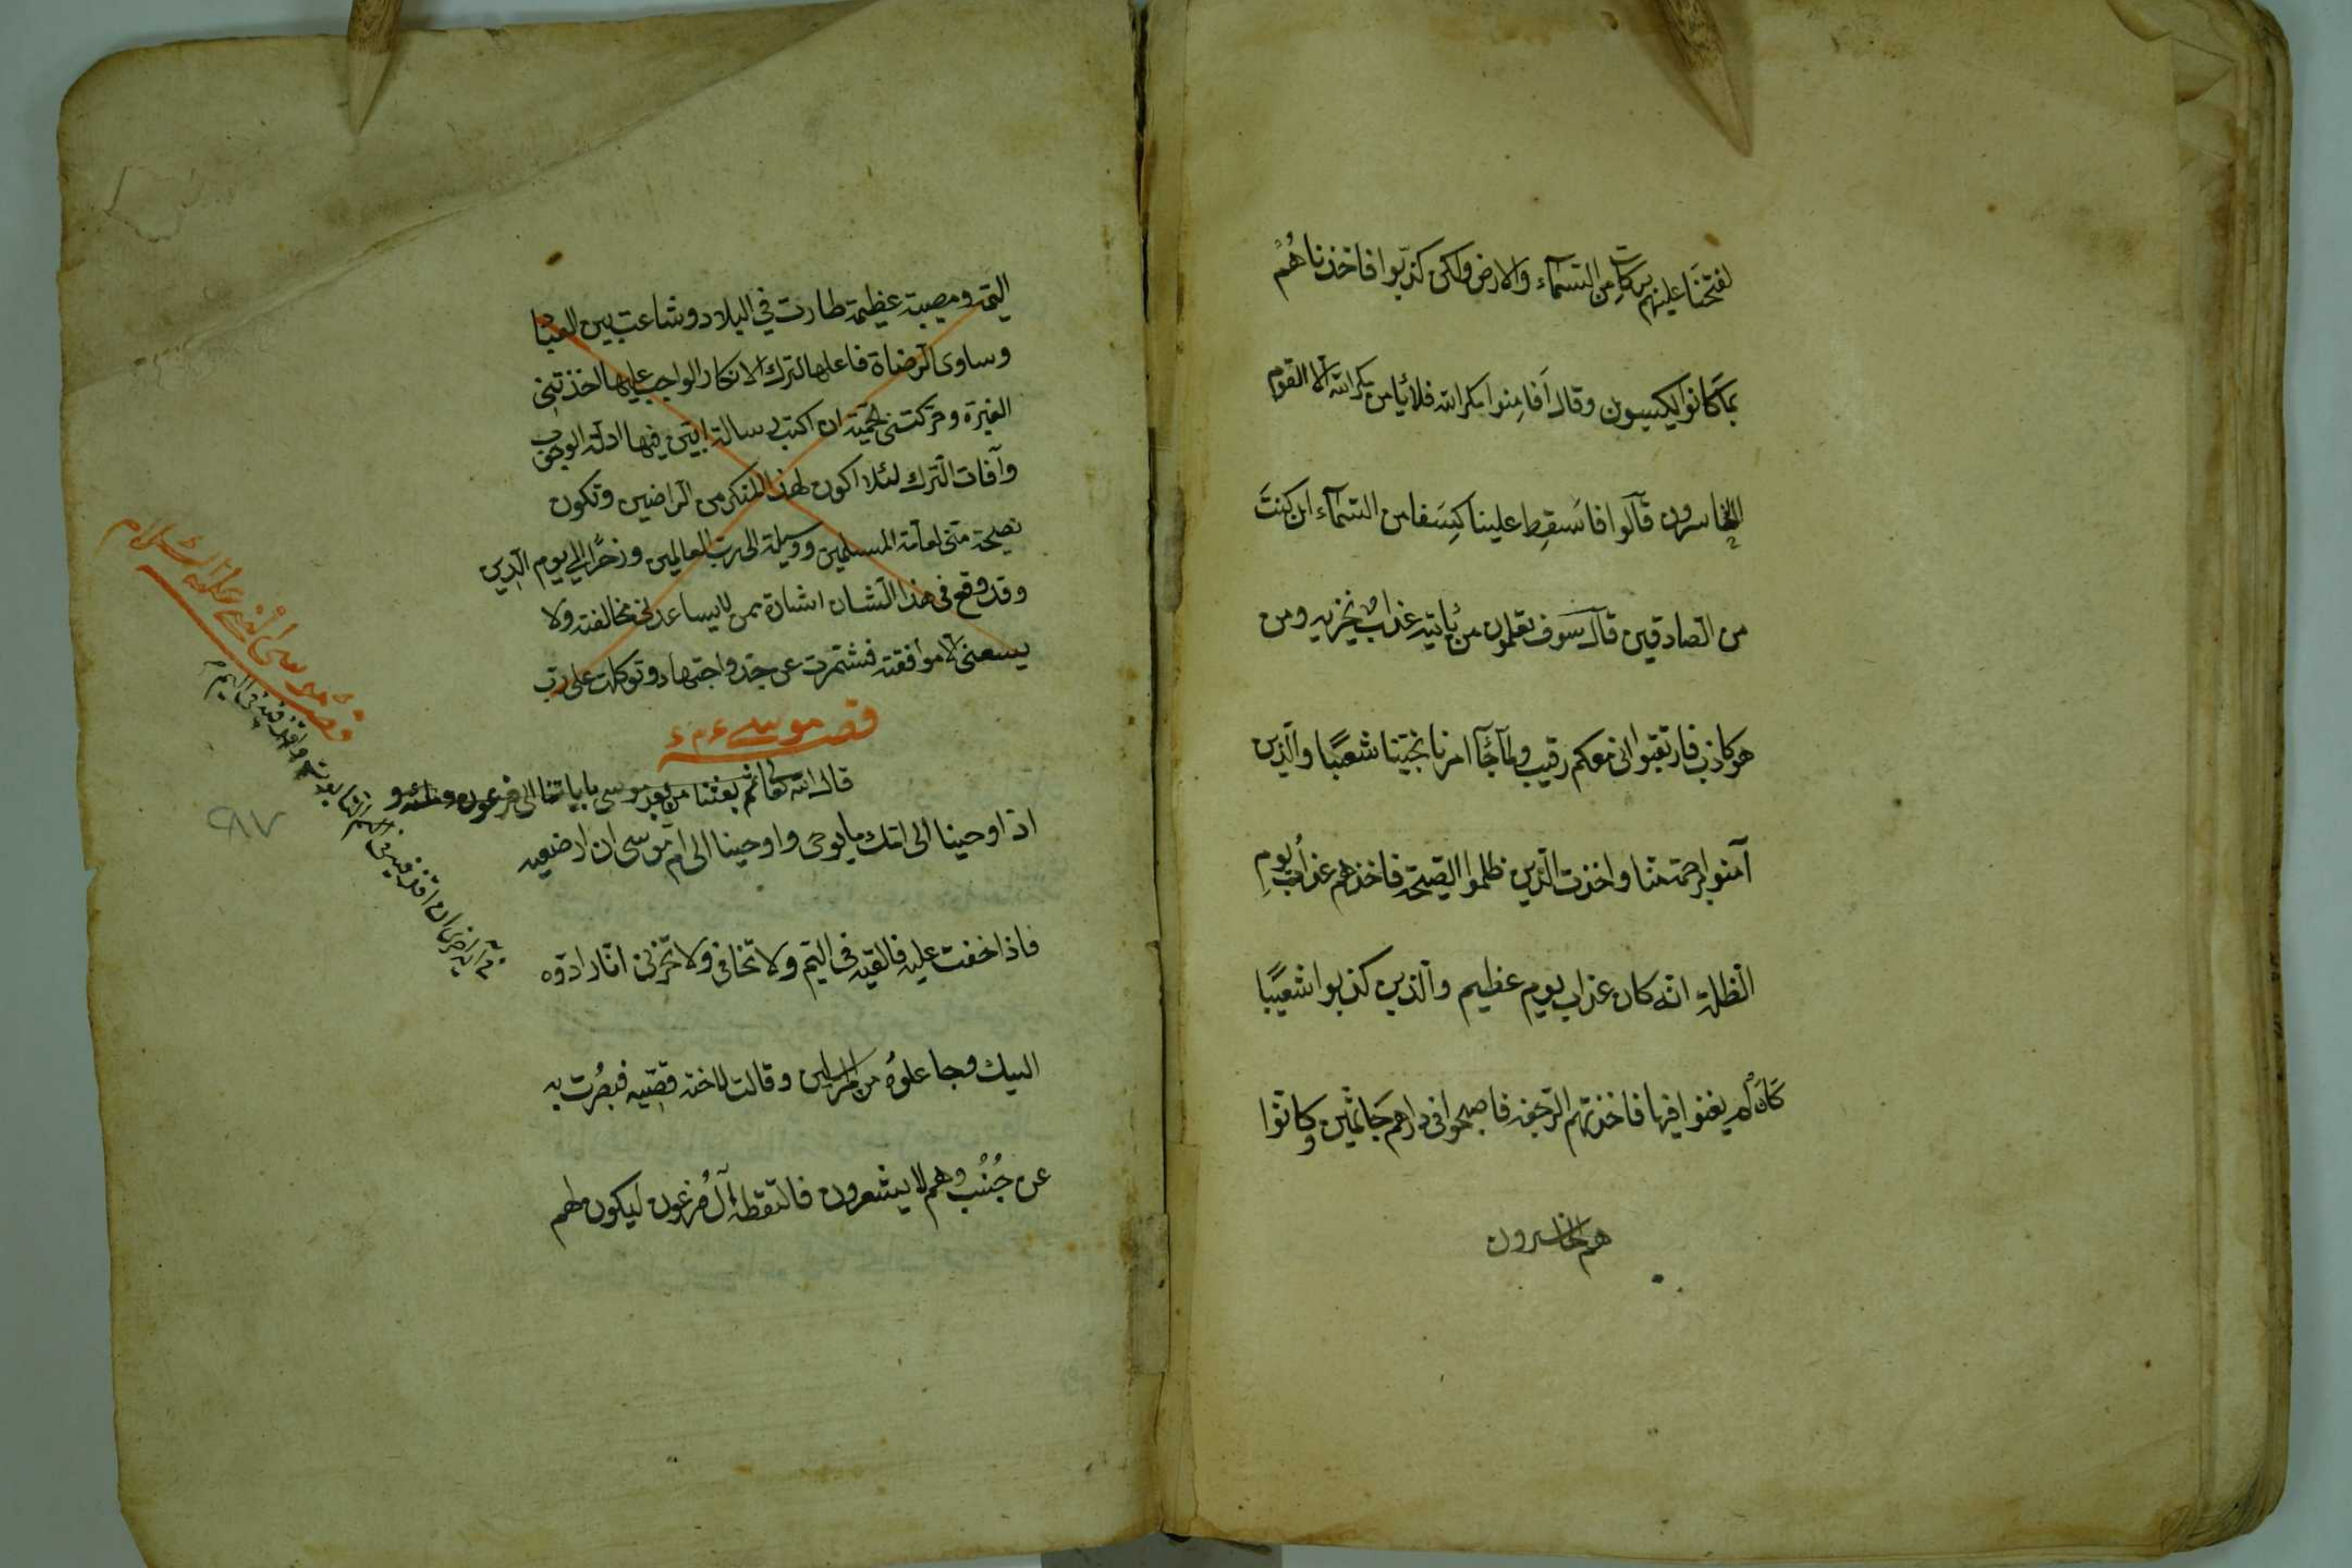 لفتحنا عليهم بركات من السمآء والارض ولكن كذّبوا فاخذناهُم
بمَا كَانوا يكسبون وقال اَفامِنوا مكر الله فلا ئامن مكر الله الّا القوم
الخاسرون قالوا فاَسقِط علينا كِسَفا من السمآء ان كنتَ
من الصادقين قال سَوف تعلمون من ئاتيه عذابٌ يخزيه ومن
هو كاذب فارتقبوا انى معكم رقيب ولمّا جٓاَ امرنا نجّينا شعيبًا والّذين
آمنوا برحمة منّا واخذت الّذين ظلموا الصّيحة فاخذهم عذابُ يومِ
الظّلة انّه كان عذاب يوم عظيم والّذين كذبوا شعيبًا
كَاَنْ لم يغنوا فيها فاخذتهم الرّجفة فاصبحوا فى دارهم جَاثمين وكانوا
هم الخاسرون
اليّمة ومصيبة عظيمة طارت في البلاد وشاعت بين العباد
وساوى الرضاة فاعلها لترك الانكار الواجب عليها اخذتنى
الغيرة وحركتنى الحميّة ان اكتب رسالة ابيّن فيها ادلّة الوجوب
وآفات الترك لئلا اكون لهذا المنكر من الراضين وتكون
نصيحة منّى لعامّة المسلمين ووسيلة الى ربّ العالمين وذخرًا الى يوم الدّين
وقد وقع فى هذا الشان اشارة بمن لا يساعدنى مخالفته ولا
يسعنى الا موافقته فشمّرت عن جدّ واجتهاد وتوكلت على ربّ
قصه موسى ع م ع
قال الله تعالى ثم بعثنا من بعدهم موسى باياتنا الى فرعون وملئه و
اذ اوحينا الى امّك ما يوحى واوحينا الى امّ موسى ان ارضعيه
فاذا خفت عليه فالقيه فى اليّم ولا تخافى ولا تحزنى انّا رادّوه
اليك وجاعلوه من المرسلين وقالت لاخته قصّيه فبصُرت به
عن جُنُب وهم لا يشعرون فالتقطه آل فرعون ليكون لهم
قصه موسى عليه السلام
ان اقذفيه فى
٩٨٧